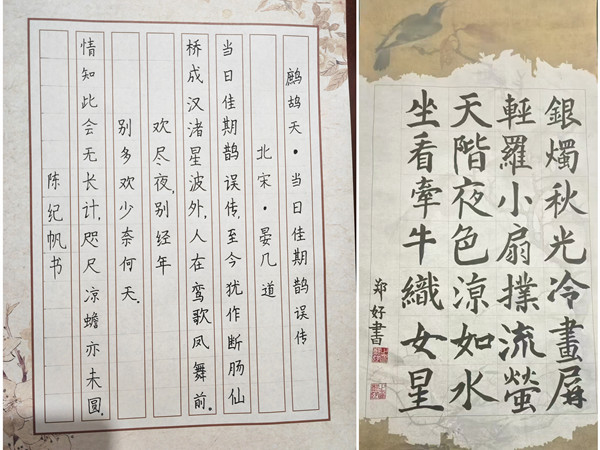 鹧鸪天·当日佳期鹊误传
北宋·晏几道
当日佳期鹊误传,至今犹作断肠仙
桥成汉渚星波外,人在鸾歌凤舞前.
欢尽夜,别经年
别多欢少奈何天.
情知此会无长计,咫尺凉蟾亦未圆.
陈纪帆书
銀燭秋光冷畫屏
輕羅小扇撲流螢
天階夜色涼如水
坐看牽牛織女星
郑好書